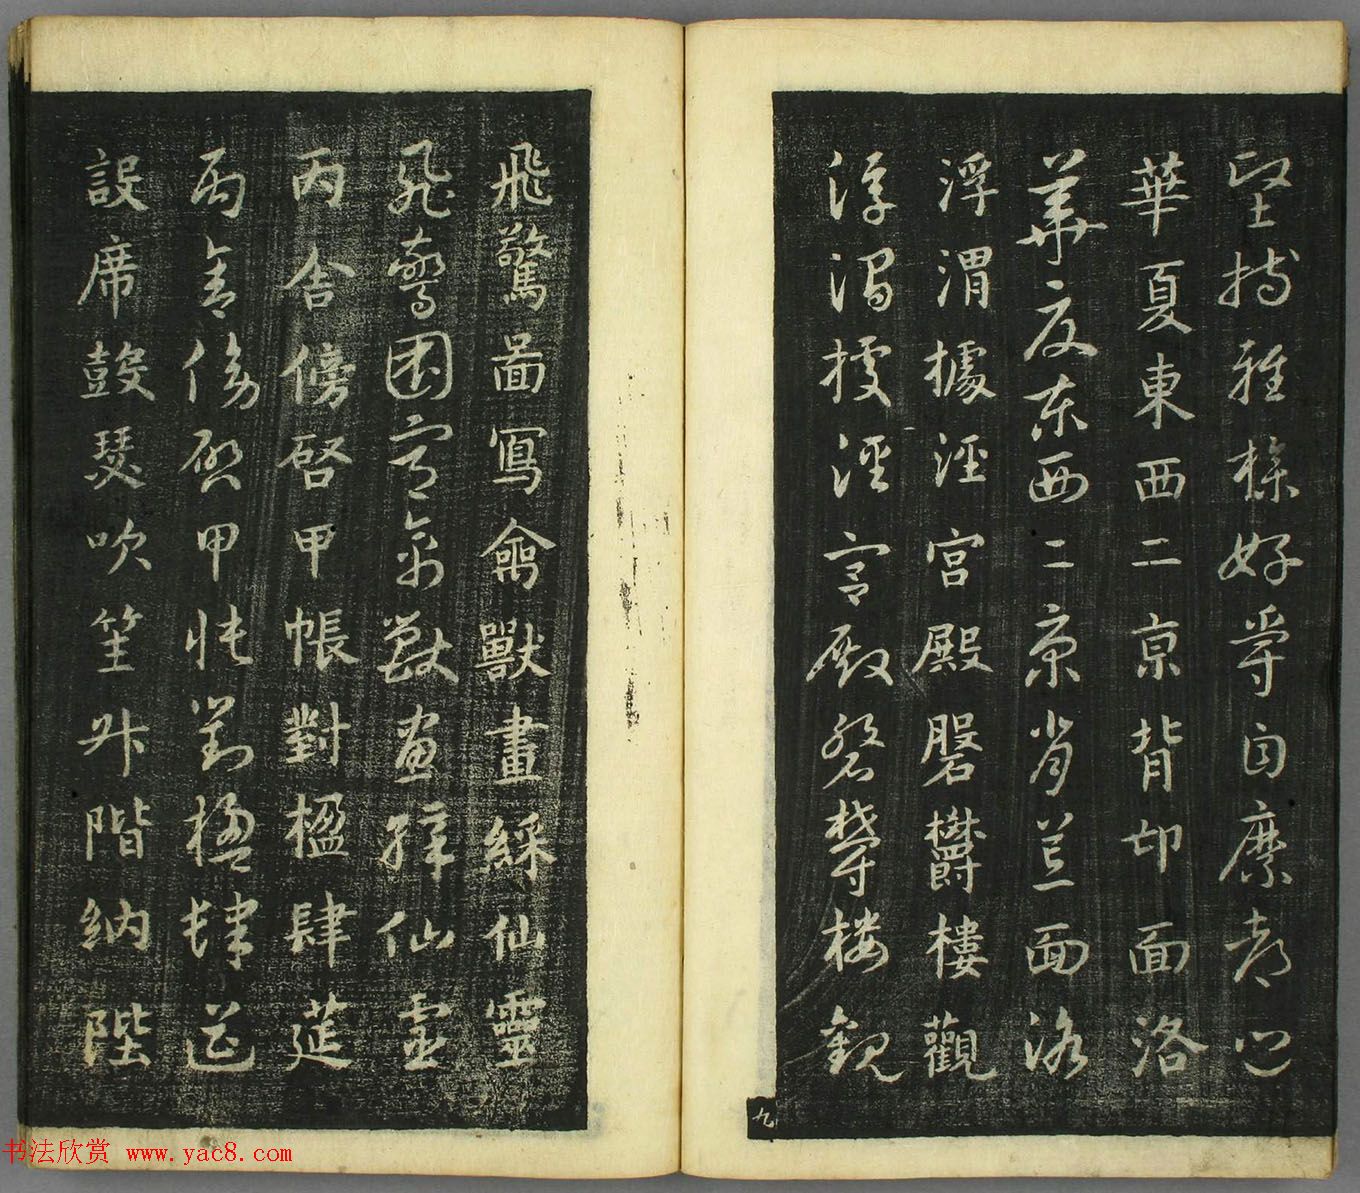 堅持雅操好爵自縻都邑
華夏東西二京背邙面洛
華夏東西二京背芒面洛
浮渭據涇宮殿磐欝樓觀
浮渭據涇宮殿磐欝樓觀
飛驚啚寫禽獸畫綵仙靈
飛驚圖寫禽獸畫綵仙靈
丙舍傍啓甲帳對楹肆莚
丙舍傍啓甲帳對楹肆筵
設席鼓瑟吹笙升階納陛
九
书法欣赏 www.yac8.com